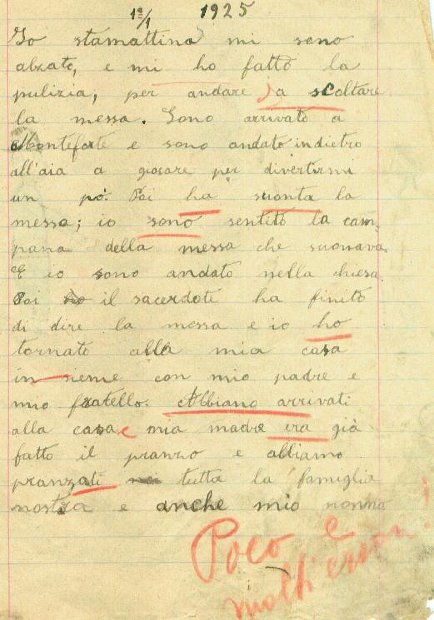 18/1 1925
Io stamattina mi sono
alzato, e mi ho fatto la
pulizia, per andare a scoltare
la messa. Sono arrivato a
Monteforte e sono andato indietro
all'aia a giocare per divertirmi
un pó. Poi ha suonta la
messa; io sono sentito la cam
pana della messa che suonava
e io sono andato nella chiesa
Poi il sacerdote ha finito
di dire la messa e io ho
tornato alla mia casa
insieme con mio padre e
mio fratello. Abbiamo arrivati
alla casa e mia madre era già
fatto il pranzo e abbiamo
pranzati tutta la famiglia
nostra e anche mio nonno
Poco e
molti errori!